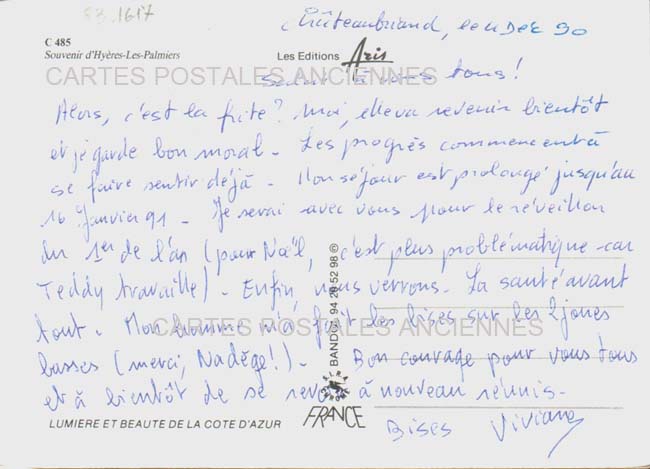 83.1617
Châteaubriand, le 11 Déc 90
C 485
Souvenir d'Hyères-Les-Palmiers
Les Editions Aris
CARTES POSTALES ANCIENNES
Salut à vous tous !
Alors, c'est la frite ? Moi, elle va revenir bientôt
et je garde bon moral - Les progrès commencent à
se faire sentir déjà - Mon séjour est prolongé jusqu'au
16 Janvier 91 - Je serai avec vous pour le réveillon
du 1er de l'an (pour Noël, c'est plus problématique car
Teddy travaille) - Enfin, nous verrons - La santé avant
tout - Mon homme m'a fait les bises sur les 2 joues
CARTES POSTALES ANCIENNES
basses (merci, Nadège !) - Bon courage pour vous tous
et à bientôt de se revoir à nouveau réunis -
BANDOL 94 29 52 98 ©
FRANCE
LUMIERE ET BEAUTÉ DE LA COTE D'AZUR
Bises Viviane